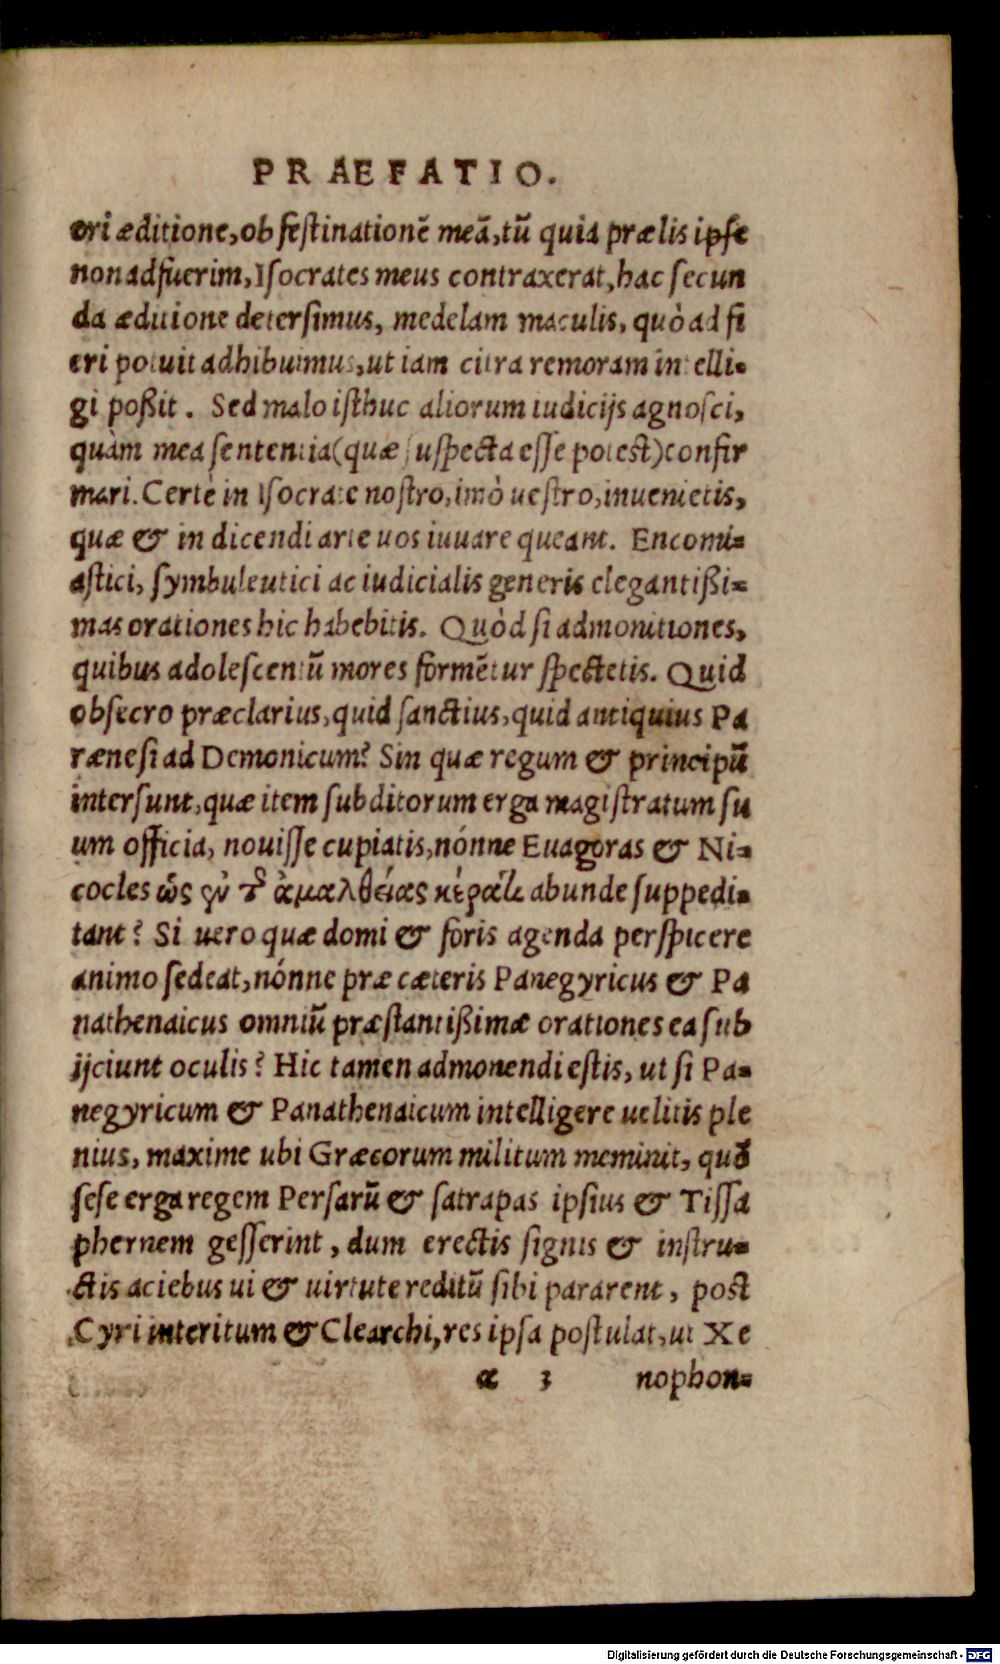 PRAEFATIO.
ori æditione, ob festinationẽ meã, tũ quia prælis ipse
non adfuerim, Isocrates meus contraxerat, hac secun
da æditione detersimus, medelam maculis, quò ad fi
eri potuit adhibuimus, ut iam citra remoram intelli-
gi poßit. Sed malo isthuc aliorum iudicijs agnosci,
quàm mea sententia (quæ suspecta esse potest) confir
mari. Certè in Isocrate nostro, imò uestro, inuenietis,
quæ & in dicendi arte uos iuuare queant. Encomi-
astici, symbuleutici ac iudicialis generis elegantißi-
mas orationes hic habebitis. Quòd si admonitiones,
quibus adolescentũ mores formẽtur spectetis. Quid
obsecro præclarius, quid sanctius, quid antiquius Pa
rænesi ad Demonicum? Sin quæ regum & principũ
intersunt, quæ item subditorum erga magistratum su
um officia, nouisse cupiatis, nónne Euagoras & Ni-
cocles ὡς ἐν τῷ ἀμαλθείας κέρατι abunde suppedi-
tant? Si uero quæ domi & foris agenda perspicere
animo sedeat, nónne præ cæteris Panegyricus & Pa
nathenaicus omniũ præstantißimæ orationes ea sub
ijciunt oculis? Hic tamen admonendi estis, ut si Pa-
negyricum & Panathenaicum intelligere uelitis ple
nius, maxime ubi Græcorum militum meminit, quõ
sese erga regem Persarũ & satrapas ipsius & Tissa
phernem gesserint, dum erectis signis & instru-
ctis aciebus ui & uirtute reditũ sibi pararent, post
Cyri interitum & Clearchi, res ipsa postulat, ut Xe
α 3 nophon-
Digitalisierung gefördert durch die Deutsche Forschungsgemeinschaft - DFG